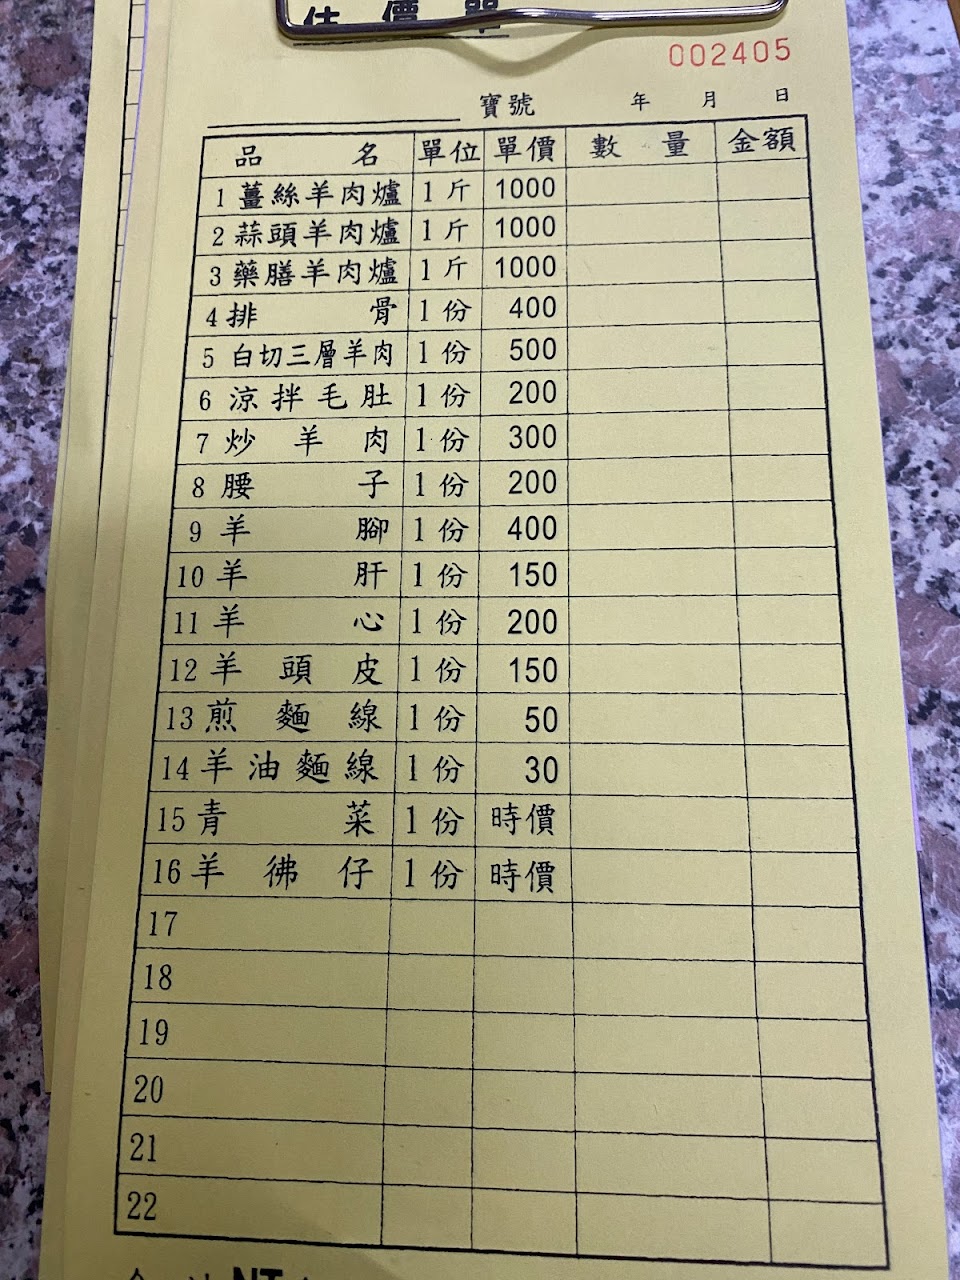 估價單
002405
寶號 年 月 日
品名 單位 單價 數量 金額
1 薑絲羊肉爐 1斤 1000
2 蒜頭羊肉爐 1斤 1000
3 藥膳羊肉爐 1斤 1000
4 排骨 1份 400
5 白切三層羊肉 1份 500
6 涼拌毛肚 1份 200
7 炒羊肉 1份 300
8 腰子 1份 200
9 羊腳 1份 400
10 羊肝 1份 150
11 羊心 1份 200
12 羊頭皮 1份 150
13 煎麵線 1份 50
14 羊油麵線 1份 30
15 青菜 1份 時價
16 羊彿仔 1份 時價
17
18
19
20
21
22
NT